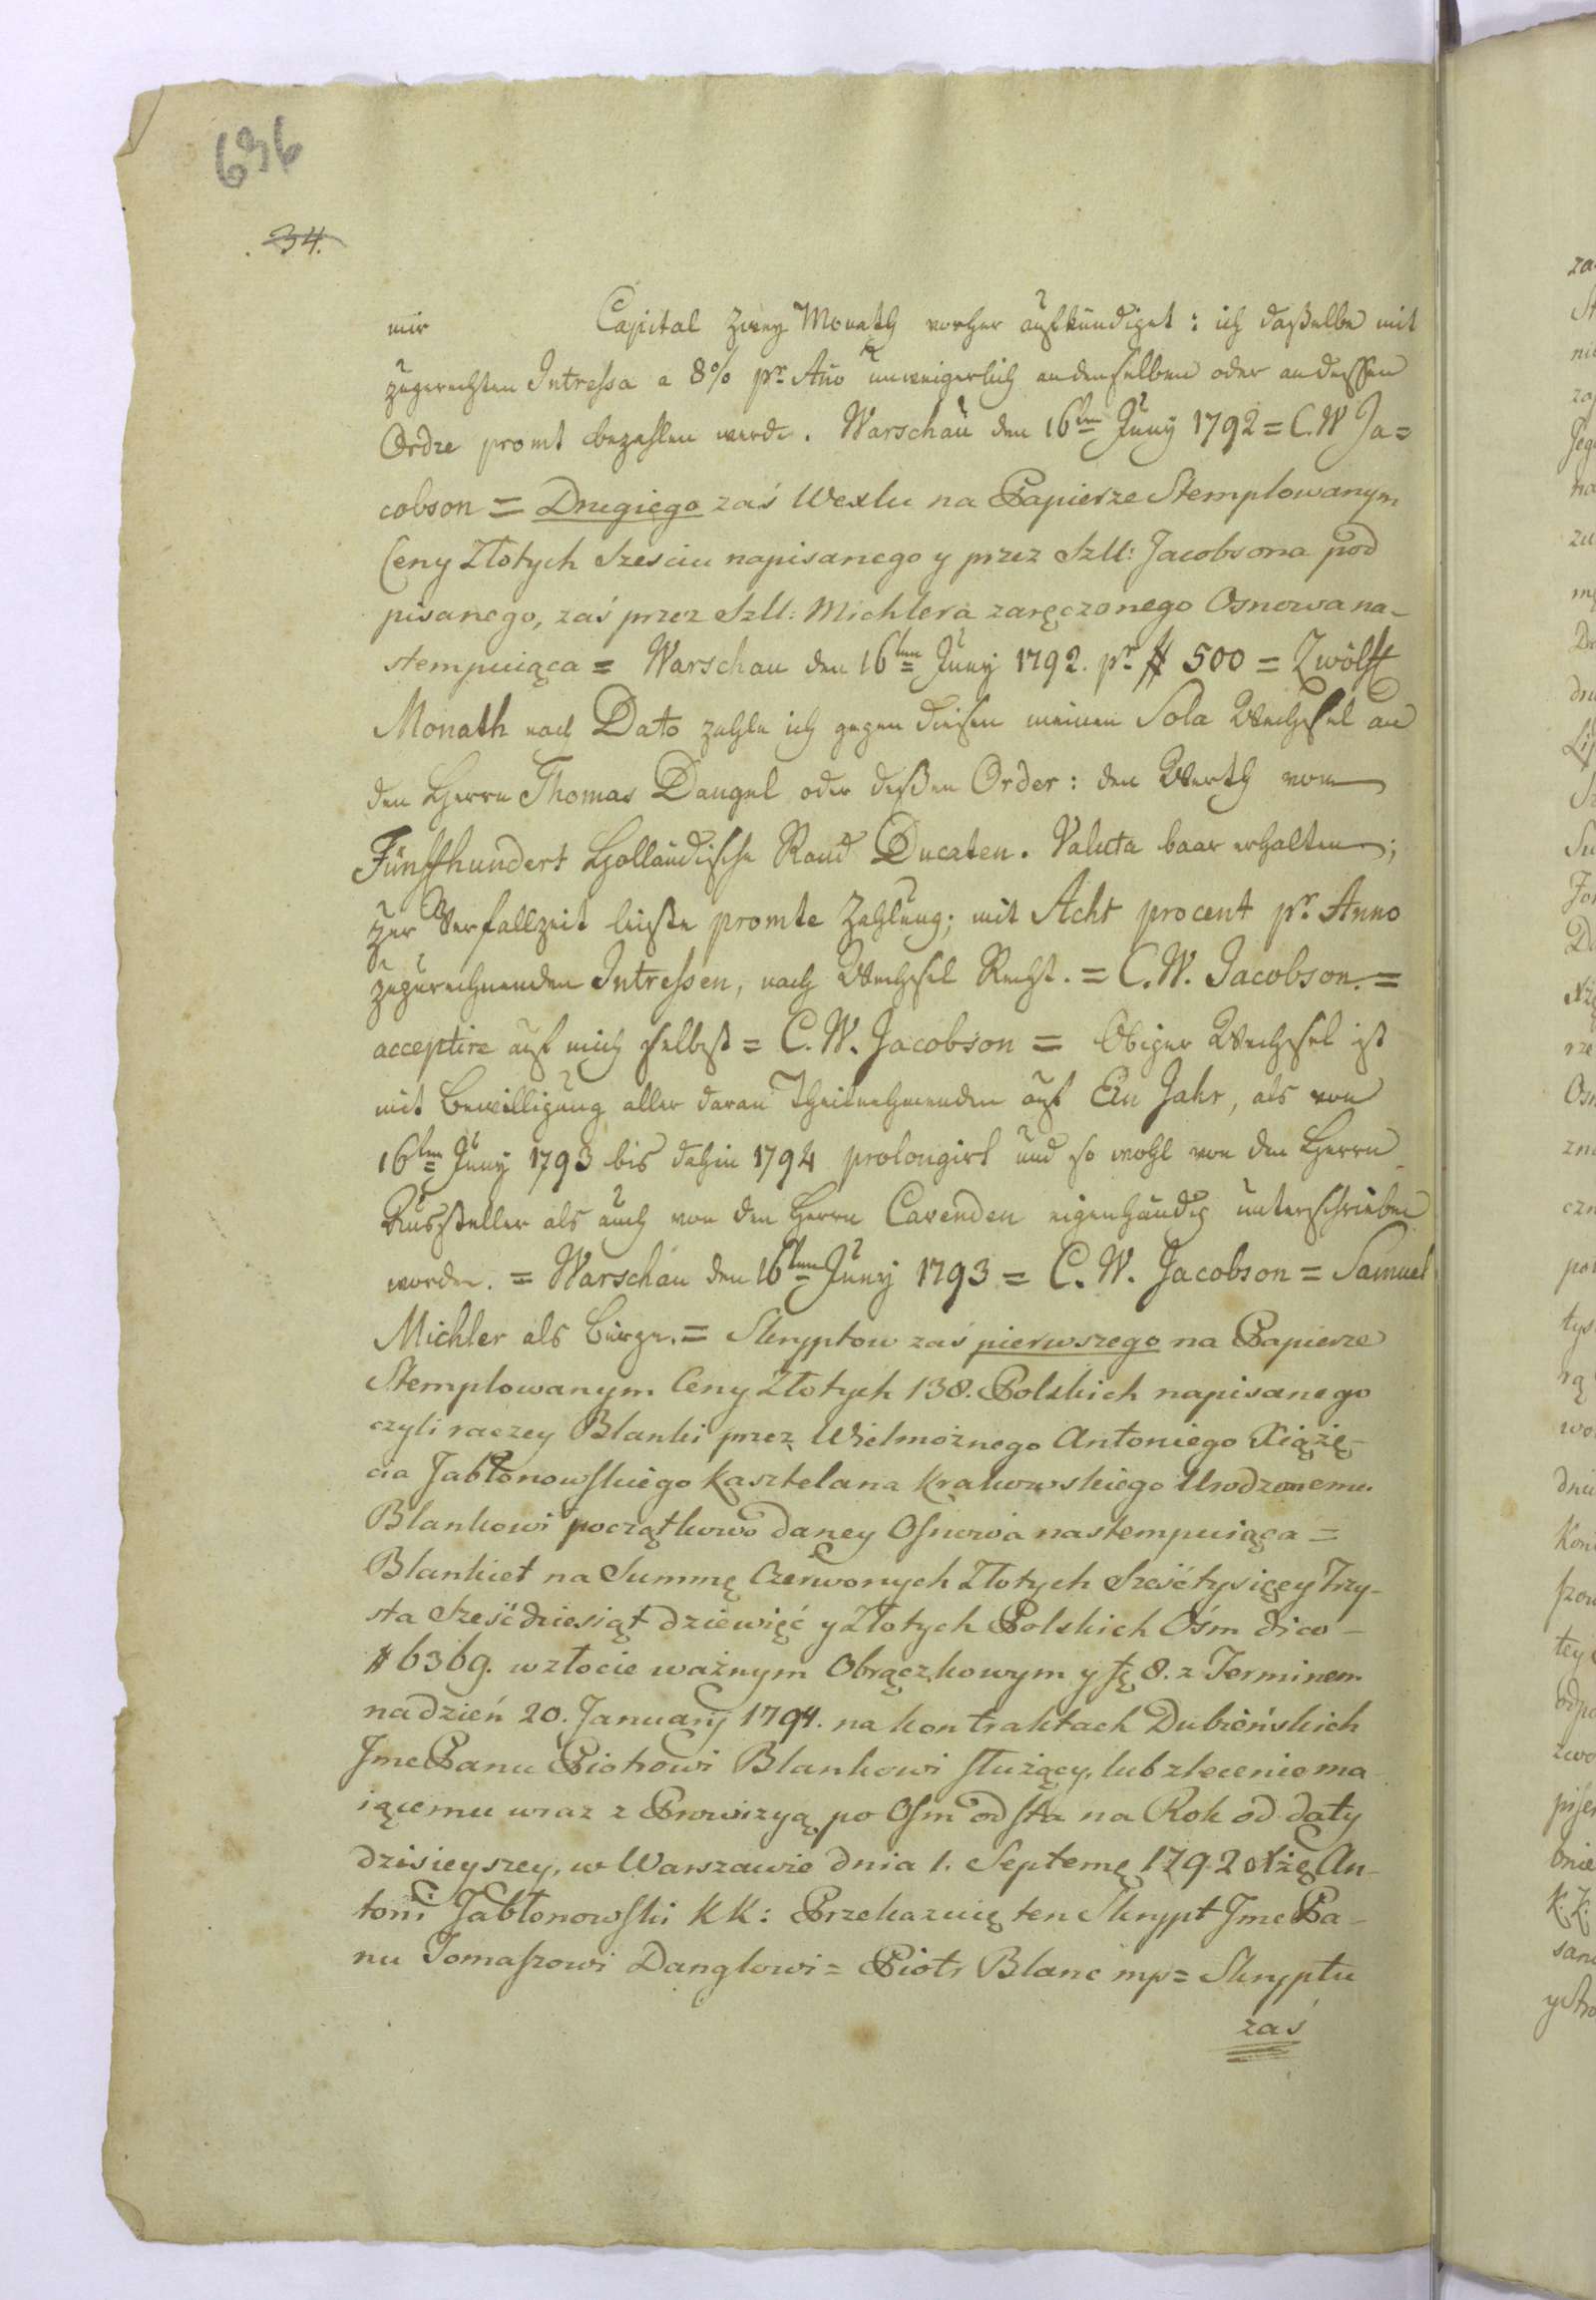 696
34.
mir Capital zwey Monath vorher aufkündiget: ich daßelbe mit
zugerechten Intressa a 8% pr. Año unweigerlich an denselben oder an dessen
Ordre promt bezahlen werde. Warschau den 16ten Juny 1792 = C.W Ja=
cobson = Drugiego zaś Wexlu na Papierze Stemplowanym
Ceny Złotych Szesciu napisanego y przez Szll: Jacobsona pod
pisanego, zaś przez Szll: Michlera zaręczonego Osnowa na-
stempuiąca = Warschau den 16ten Juny 1792. pr # 500 = Zwölff
Monath nach Dato zahle ich gegen diesen meinen Sola Wechsel an
den Herrn Thomas Dangel oder deßen Order: den Werth von
Fünffhundert Holländische Rand Ducaten. Valuta baar erhalten;
zur Verfallzeit leiste promte Zahlung; mit Acht procent pr. Anno
zuzurechnenden Intressen, nach Wechsel Recht. = C.W. Jacobson. =
acceptire auf mich selbst = C.W. Jacobson = Obiger Wechsel ist
mit Bewilligung aller daran Theilnehmenden auf Ein Jahr, als von
16ten Juny 1793 bis dahin 1794 prolongirt und so wohl von den Herrn
Aussteller als auch von den Herrn Cavenden eigenhändig unterschrieben
worden. = Warschau den 16ten Juny 1793 = C. W. Jacobson = Samuel
Michler als Bürge. = Skryptow zaś pierwszego na Papierze
Stemplowanym Ceny Złotych 138. Polskich napisanego
czyli raczey Blanki przez Wielmożnego Antoniego Xiążę-
cia Jabłonowskiego Kasztelana Krakowskiego Urodzonemu
Blankowi początkowo daney Osnowa nastempuiąca =
Blankiet na Summę Czerwonych Złotych Sześć tysięcy Trzy-
sta Sześćdziesiąt dziewięć y Złotych Polskich Ośm dico -
# 6369. w złocie ważnym Obrączkowym y fę 8. z Terminem
na dzień 20. January 1794. na kontraktach Dubieńskich
Jmc Panu Piotrowi Blankowi służący, lub zlecenie ma
iącemu wraz z Prowizyą po Osm od sta na Rok od daty
dzisieyszey, w Warszawie dnia 1. Septemę 1792 Xżę An-
toni Jabłonowski KK: Przekazuię ten Skrypt Jmc Pa-
nu Tomaszowi Danglowi = Piotr Blanc mp = Skryptu
zaś